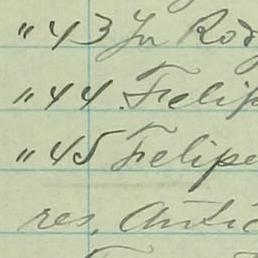 " 43 Jn Rod
" 44 Felip
" 45 Felipe
res, Antic